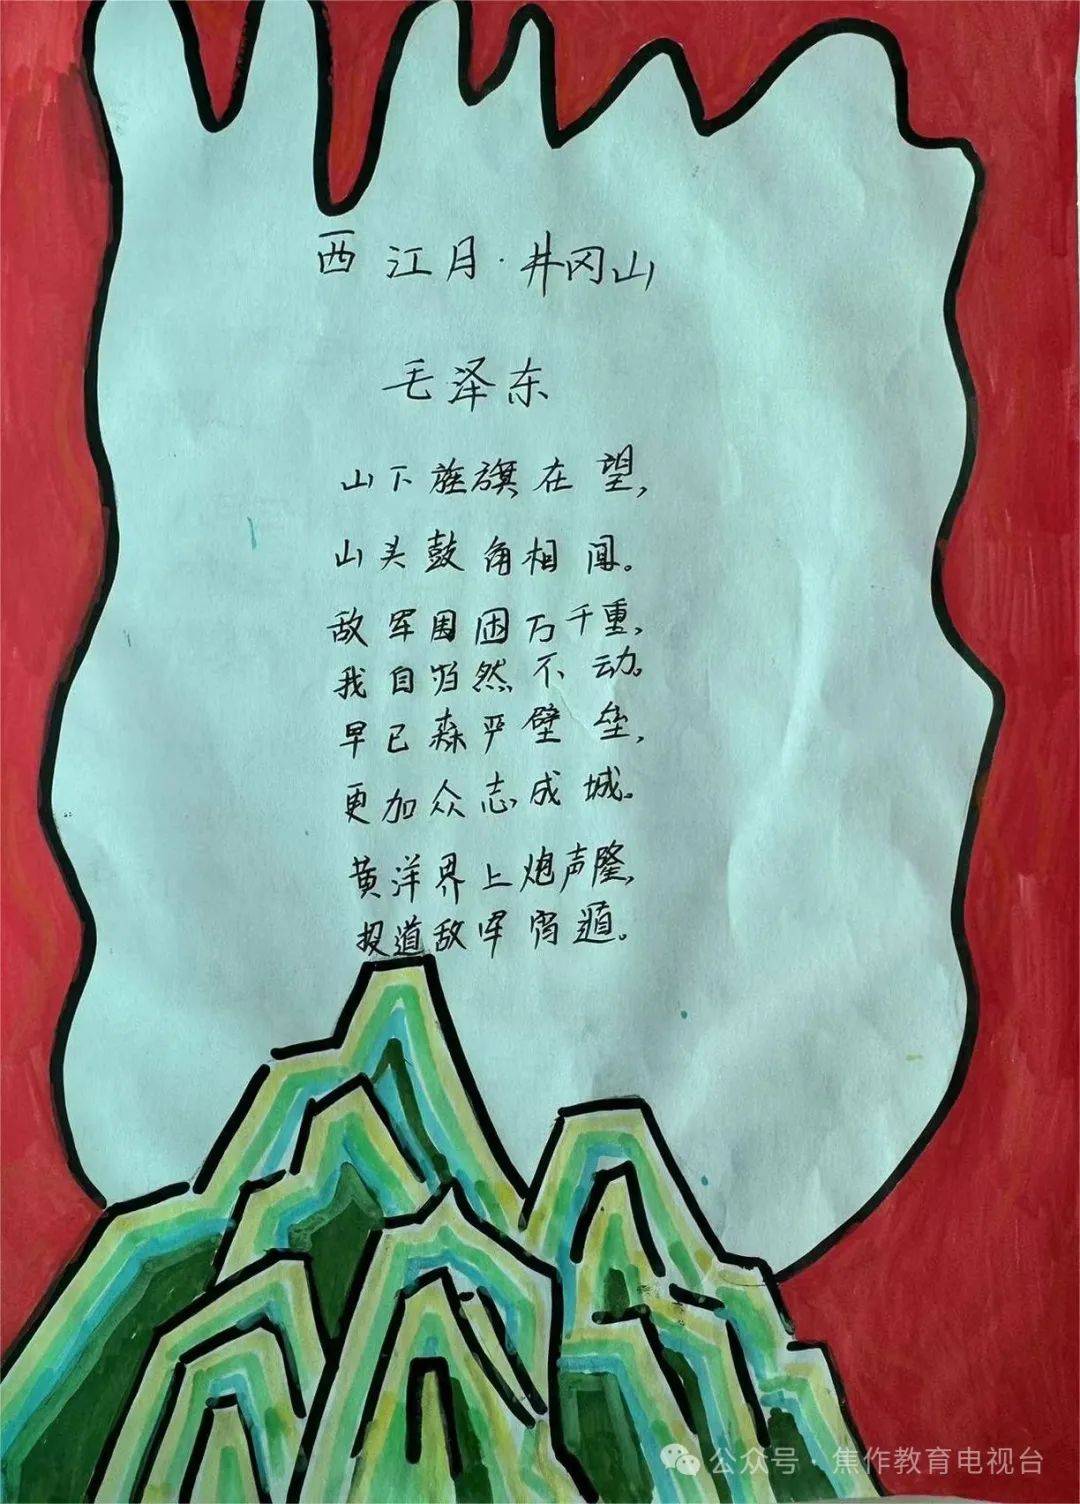 西江月·井冈山
毛泽东
山下旌旗在望，
山头鼓角相闻。
敌军围困万千重，
我自岿然不动。
早已森严壁垒，
更加众志成城。
黄洋界上炮声隆，
报道敌军宵遁。
公众号·焦作教育电视台